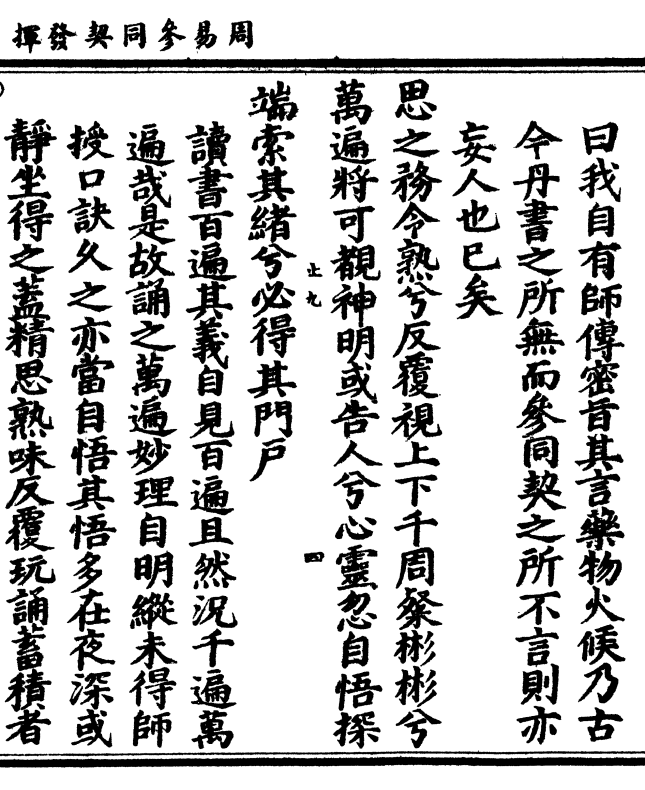 周易參同契發揮
曰我自有師傳密旨其言藥物火候乃古
今丹書之所無而參同契之所不言則亦
妄人也已矣
思之務令熟兮反覆視上下千周粲彬彬兮
萬遍將可覩神明或告人兮心靈忽自悟探
端索其緒兮必得其門戶
讀書百遍其義自見百遍且然況千遍萬
遍哉是故誦之萬遍妙理自明縱未得師
授口訣久之亦當自悟其悟多在夜深或
靜坐得之蓋精思熟味反覆玩誦蓄積者
止九
四